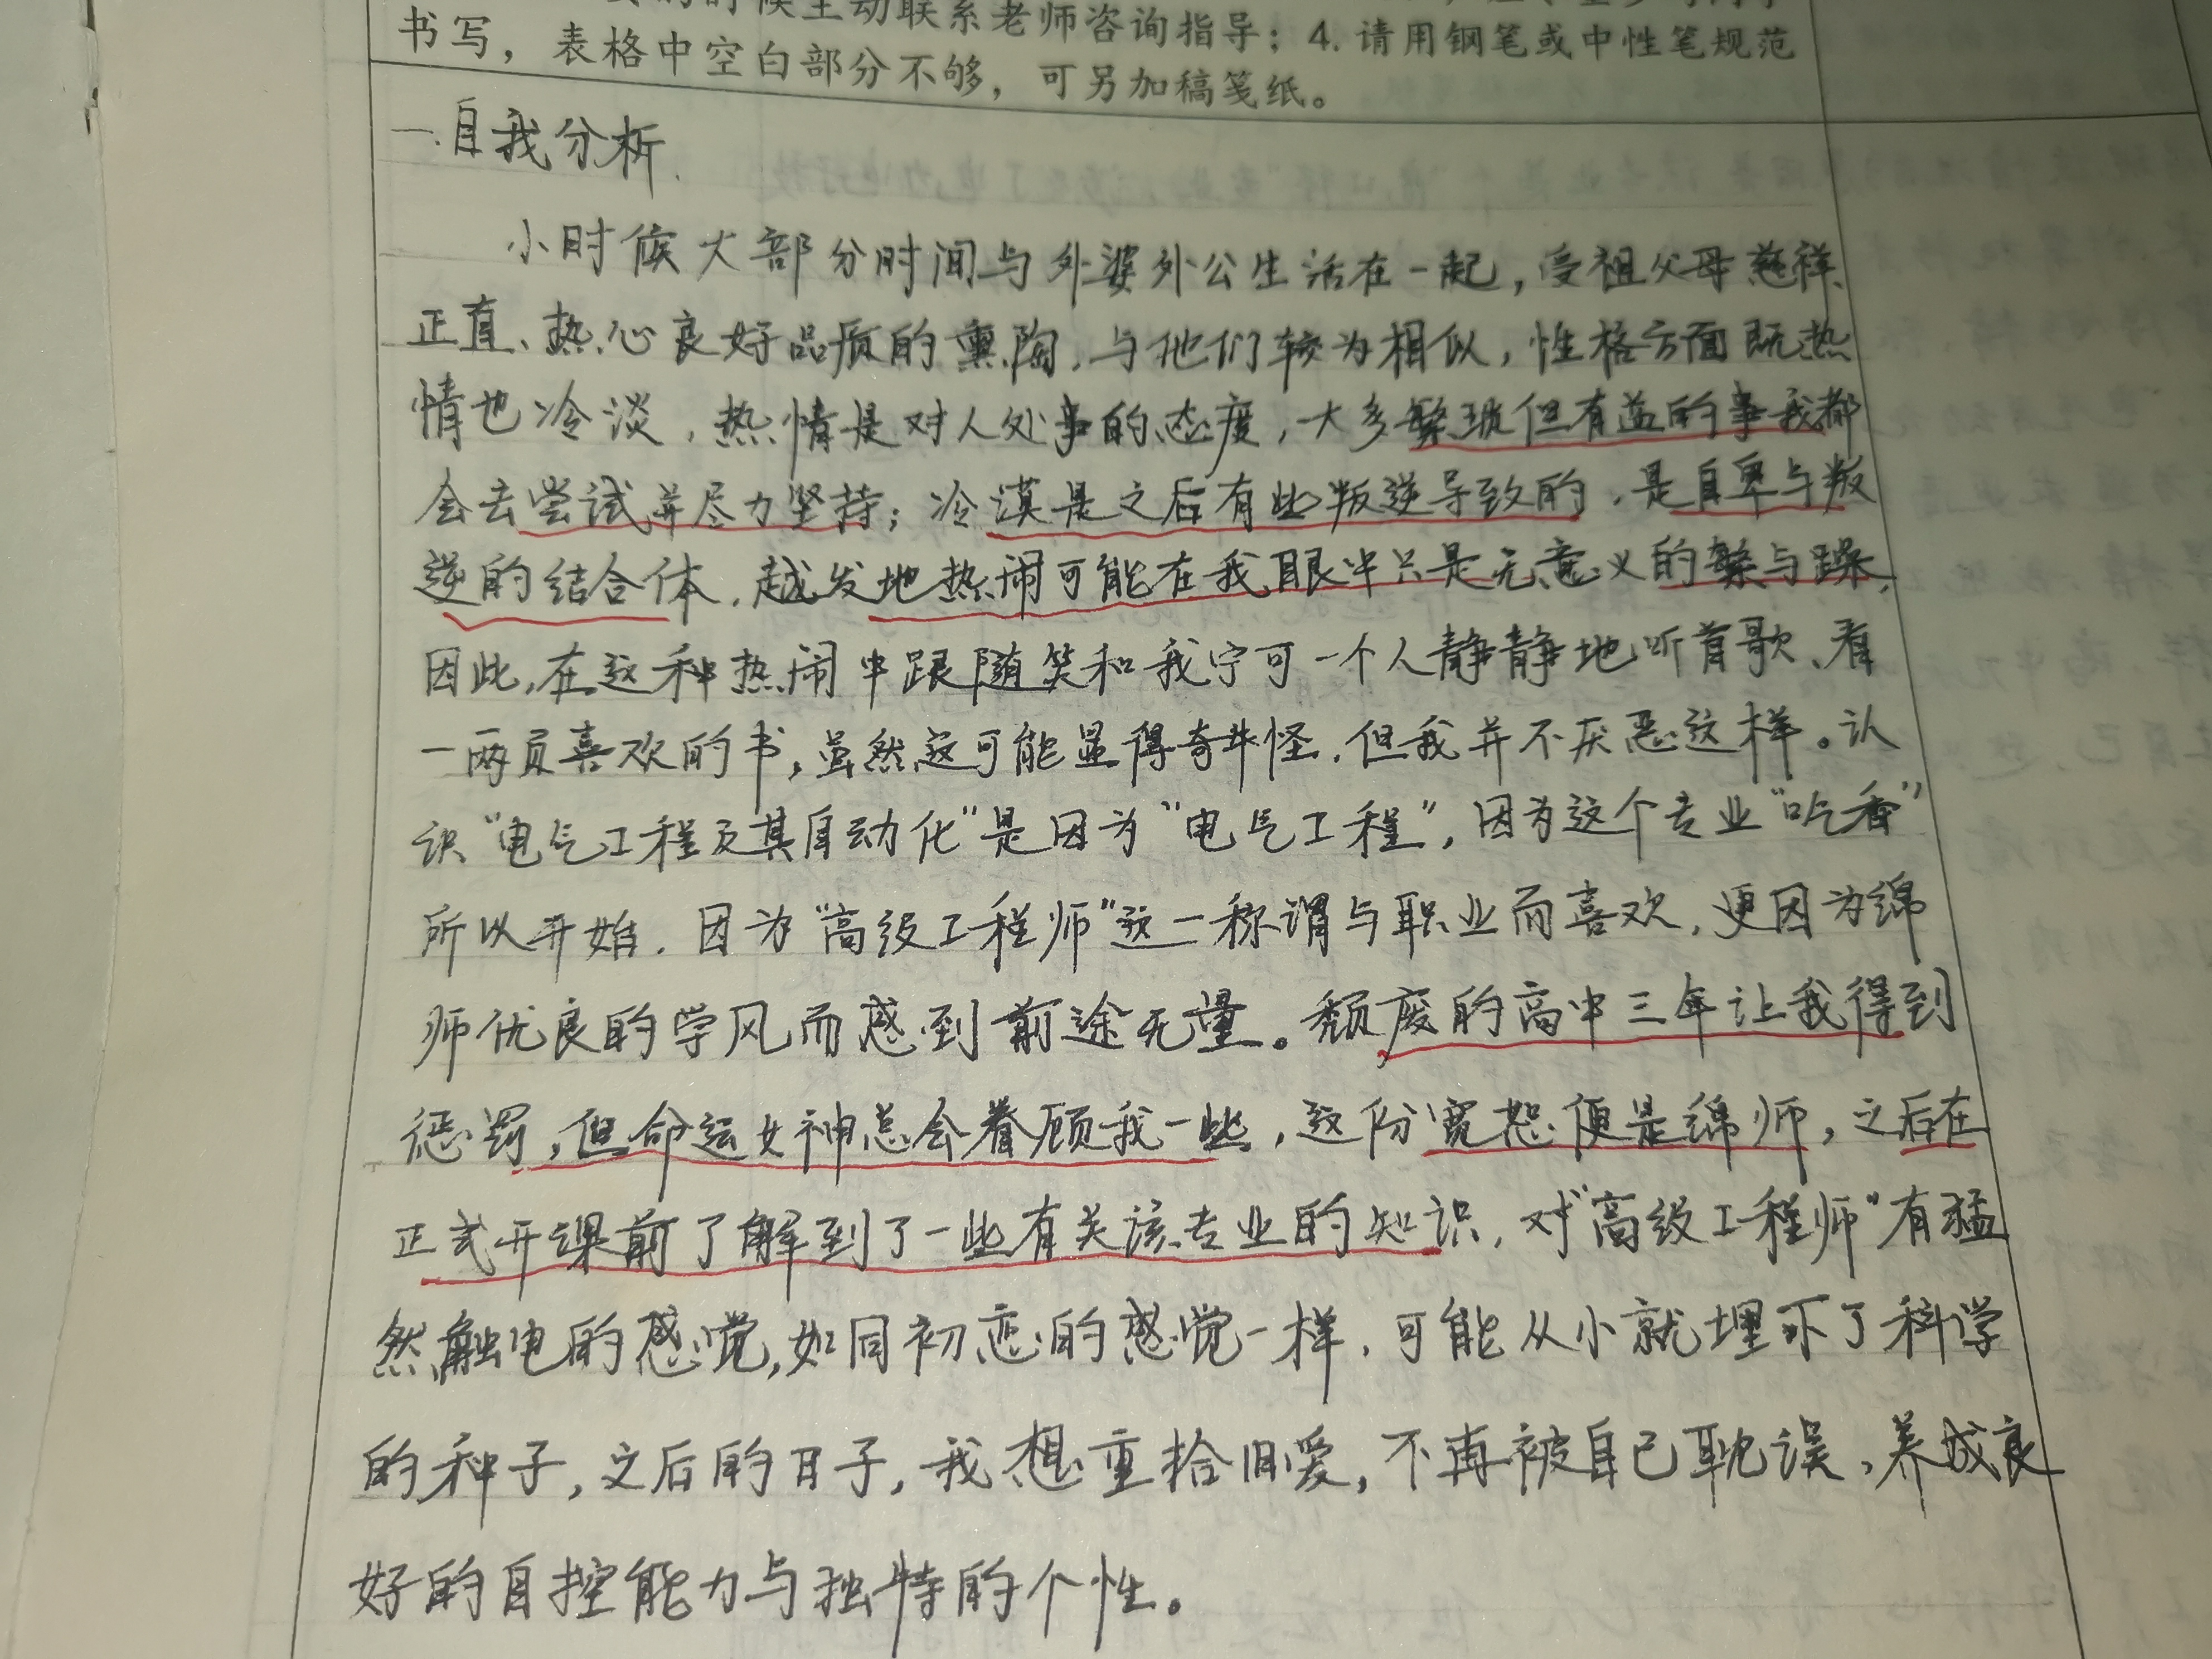 候主动联系老师咨询指导；4.请用钢笔或中性笔规范
书写，表格中空白部分不够，可另加稿笺纸。
一.自我分析.
小时候大部分时间与外婆外公生活在一起，受祖父母慈祥、
正直、热心良好品质的熏陶，与他们较为相似，性格方面既热
情也冷淡，热情是对人处事的态度，大多繁琐但有益的事我都
会去尝试并尽力坚持；冷漠是之后有些叛逆导致的，是自卑与叛
逆的结合体，越发地热闹可能在我眼中只是无意义的繁与躁，
因此，在这种热闹中跟随笑和我宁可一个人静静地听首歌、看
一两页喜欢的书，虽然这可能显得奇怪，但我并不厌恶这样。认
识“电气工程及其自动化”是因为“电气工程”，因为这个专业“吃香”
所以开始，因为“高级工程师”这一称谓与职业而喜欢，更因为绵
师优良的学风而感到前途无量。颓废的高中三年让我得到
惩罚，但命运女神总会眷顾我一些，这份宽恕便是绵师，之后在
正式开课前了解到了一些有关该专业的知识，对“高级工程师”有猛
然触电的感觉，如同初恋的感觉一样，可能从小就埋下了科学
的种子，之后的日子，我想重拾旧爱，不再被自己耽误，养成良
好的自控能力与独特的个性。